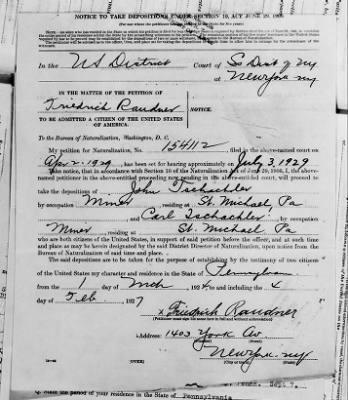 NOTICE TO TAKE DEPOSITIONS UNDER SECTION 10, ACT JUNE 29, 1906
In the US District Court of So Dist of NY
at New York NY
IN THE MATTER OF THE PETITION OF
Friedrich Raudner
NOTICE.
TO BE ADMITTED A CITIZEN OF THE UNITED STATES
OF AMERICA.
To the Bureau of Naturalization, Washington, D. C.
My petition for Naturalization, No. 154112 filed in the above-named court on
Apr 2 1929, has been set for hearing approximately on July 3, 1929
Take notice, that in accordance with Section 10 of the Naturalization Act of June 29, 1906, I, the above-
named petitioner in the above-entitled proceeding now pending in the above-entitled court, will proceed to
take the depositions of John Tschachler
by occupation Miner, residing at St. Michael, Pa
and Carl Tschachler, by occupation
Miner residing at St. Michael, Pa
who are both citizens of the United States, in support of said petition before the officer, and at such time
and place as may be herein designated by the said District Director of Naturalization, upon notice from the
Bureau of Naturalization of said time and place.
The said depositions are to be taken for the purpose of establishing by the testimony of two citizens
of the United States my character and residence in the State of Pennsylvania
from the 1 day of Mch 1924 to and including the 4
day of Feb 1927
x Friedrich Raudner
(Petitioner must sign his name here in full and without abbreviation)
Address: 1403 York Av
(Street)
New York NY
(City or town) (State)
Sept. 7,
the period of your residence in the State of Pennsylvania